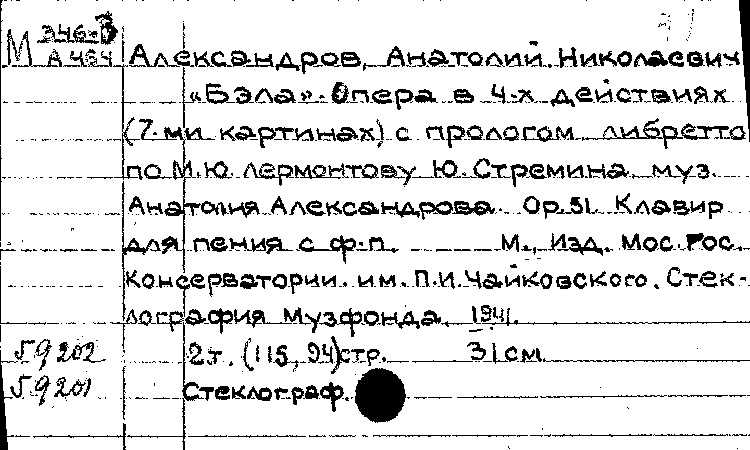 М Э46-3
А 464 Александров, Анатолий Николаевич
«Бэла». Опера в 4-х действиях
(7-ми картинах) с прологом либретто
по М.Ю. Лермонтову Ю. Стремина, муз.
Анатолия Александрова. Op. 51. Клавир
для пения с ф-п. М., Изд. Мос. Гос.
Консерватории. им. П.И. Чайковского. Стек-
лография Музфонда. 1941.
59202 2 т. (115, 94) стр. 31 см
59201 Стеклограф.